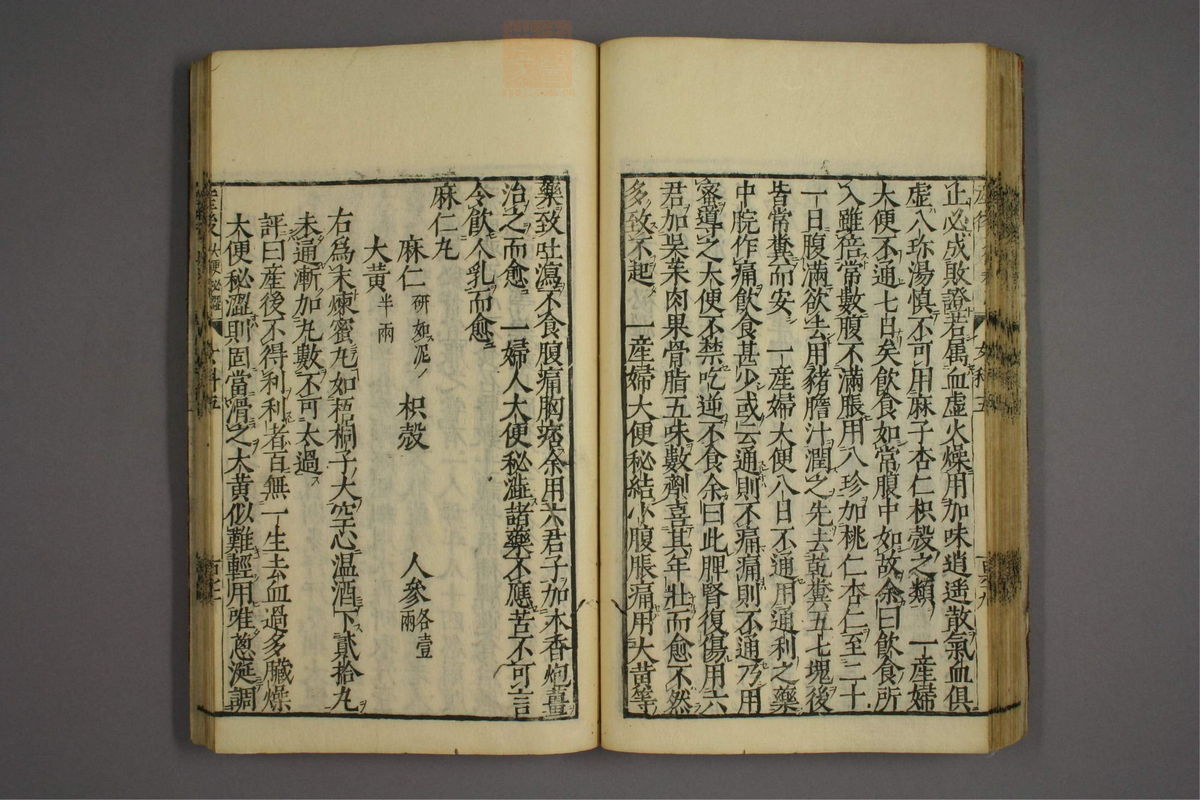 止必成敗證若属血虛火燥用加味逍遥散氣血俱
虛八珎湯慎不可用麻子杏仁枳殼之類　一産婦
大便不通七日矣飲食如常腹中如故余曰飲食所
入雖倍常數腹不滿脹用八珍加桃仁杏仁至二十
一日腹滿欲去用豬膽汁潤之先去乾糞五七塊後
皆常糞而安　一産婦大便八日不通用通利之藥
中脘作痛飲食甚少或云通則不痛痛則不通乃用
蜜導之大便不禁吃逆不食余曰此脾腎復傷用六
君加吴茱肉果骨脂五味數劑喜其年壯而愈不然
多致不起　一産婦大便秘結小腹脹痛用大黄等
藥致吐瀉不食腹痛胸痞余用六君子加木香炮薑
治之而愈　一婦人大便秘澁諸藥不應苦不可言
令飲人乳而愈
麻仁丸
麻仁研如泥　枳殼　人參各壹兩
大黄半兩
右爲末煉蜜丸如梧桐子大空心温酒下貳拾丸
未通漸加丸數不可太過
評曰産後不得利利者百無一生去血過多臓燥
大便秘澀則固當滑之大黄似難輕用唯葱涎調
産後大便秘澀　女科五